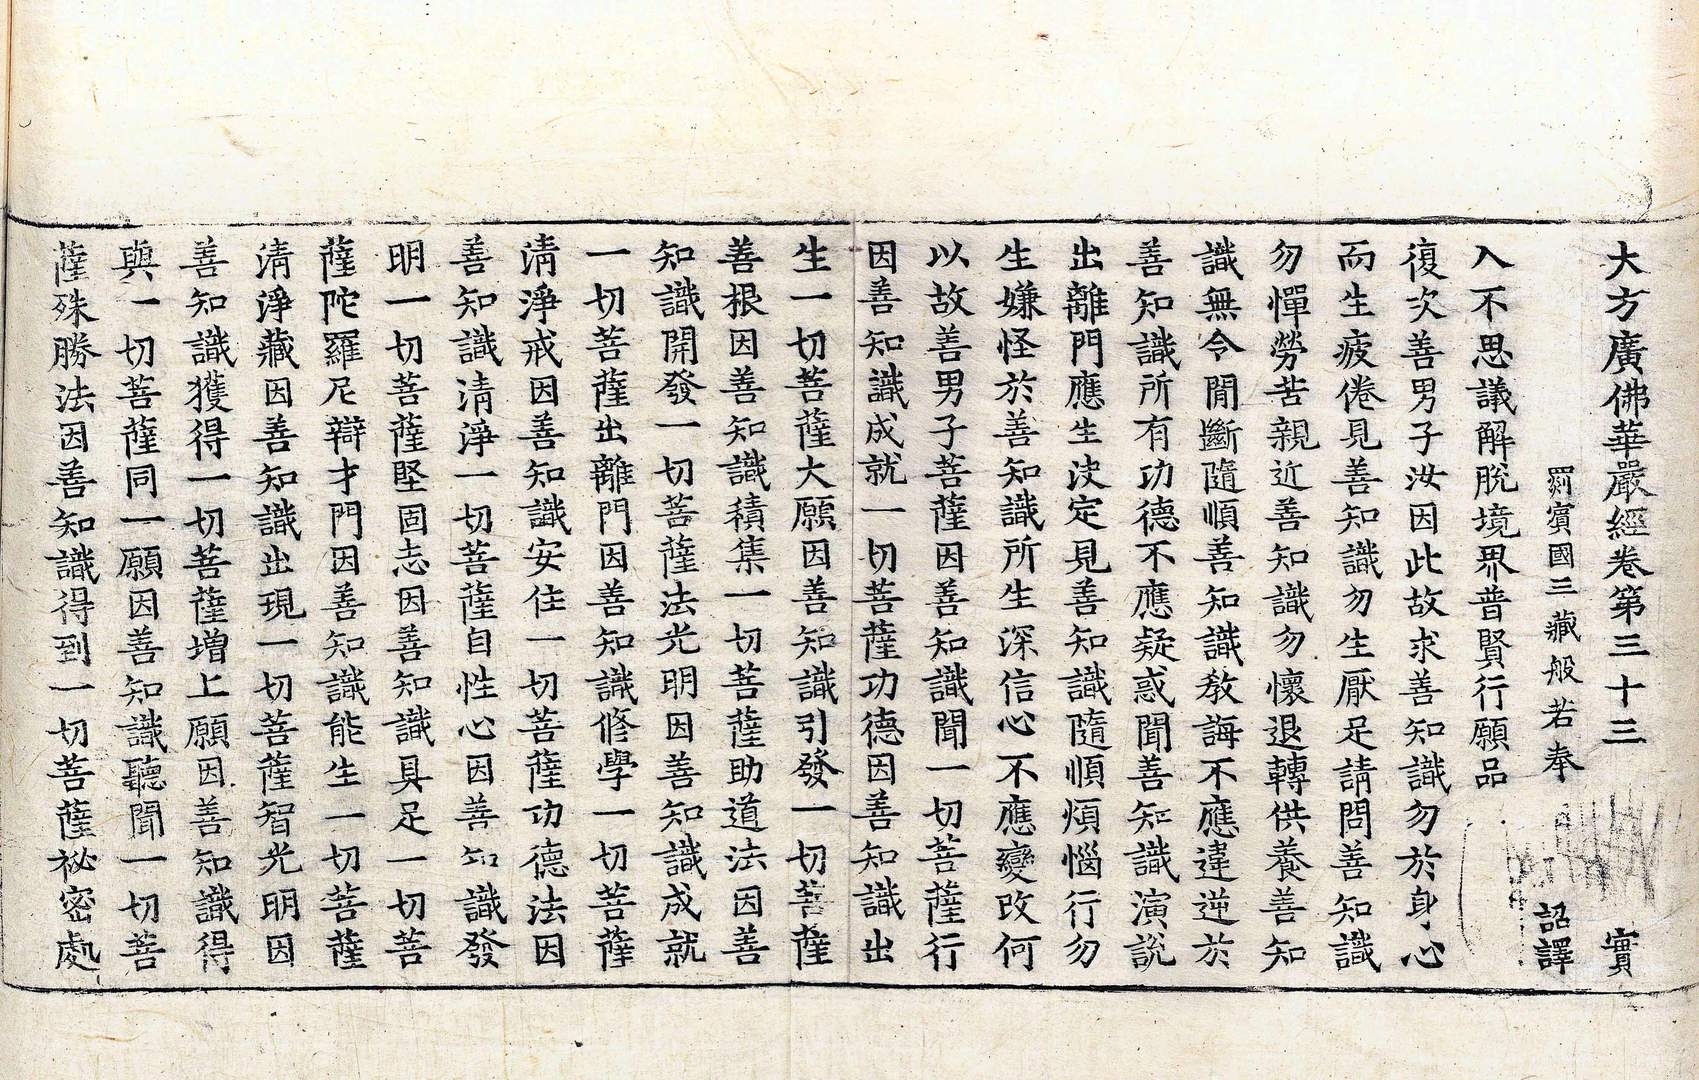 大方廣佛華嚴經卷第三十三 實
罽賓國三藏般若奉 詔譯
入不思議解脫境界普賢行願品
復次善男子汝因此故求善知識勿於身心
而生疲倦見善知識勿生厭足請問善知識
勿憚勞苦親近善知識勿懷退轉供養善知
識無令閒斷隨順善知識教誨不應違逆於
善知識所有功德不應疑惑聞善知識演說
出離門應生決定見善知識隨順煩惱行勿
生嫌怪於善知識所生深信心不應變改何
以故善男子菩薩因善知識聞一切菩薩行
因善知識成就一切菩薩功德因善知識出
生一切菩薩大願因善知識引發一切菩薩
善根因善知識積集一切菩薩助道法因善
知識開發一切菩薩法光明因善知識成就
一切菩薩出離門因善知識修學一切菩薩
清淨戒因善知識安住一切菩薩功德法因
善知識清淨一切菩薩自性心因善知識發
明一切菩薩堅固志因善知識具足一切菩
薩陀羅尼辯才門因善知識能生一切菩薩
清淨藏因善知識出現一切菩薩智光明因
善知識獲得一切菩薩增上願因善知識得
與一切菩薩同一願因善知識聽聞一切菩
薩殊勝法因善知識得到一切菩薩祕密處